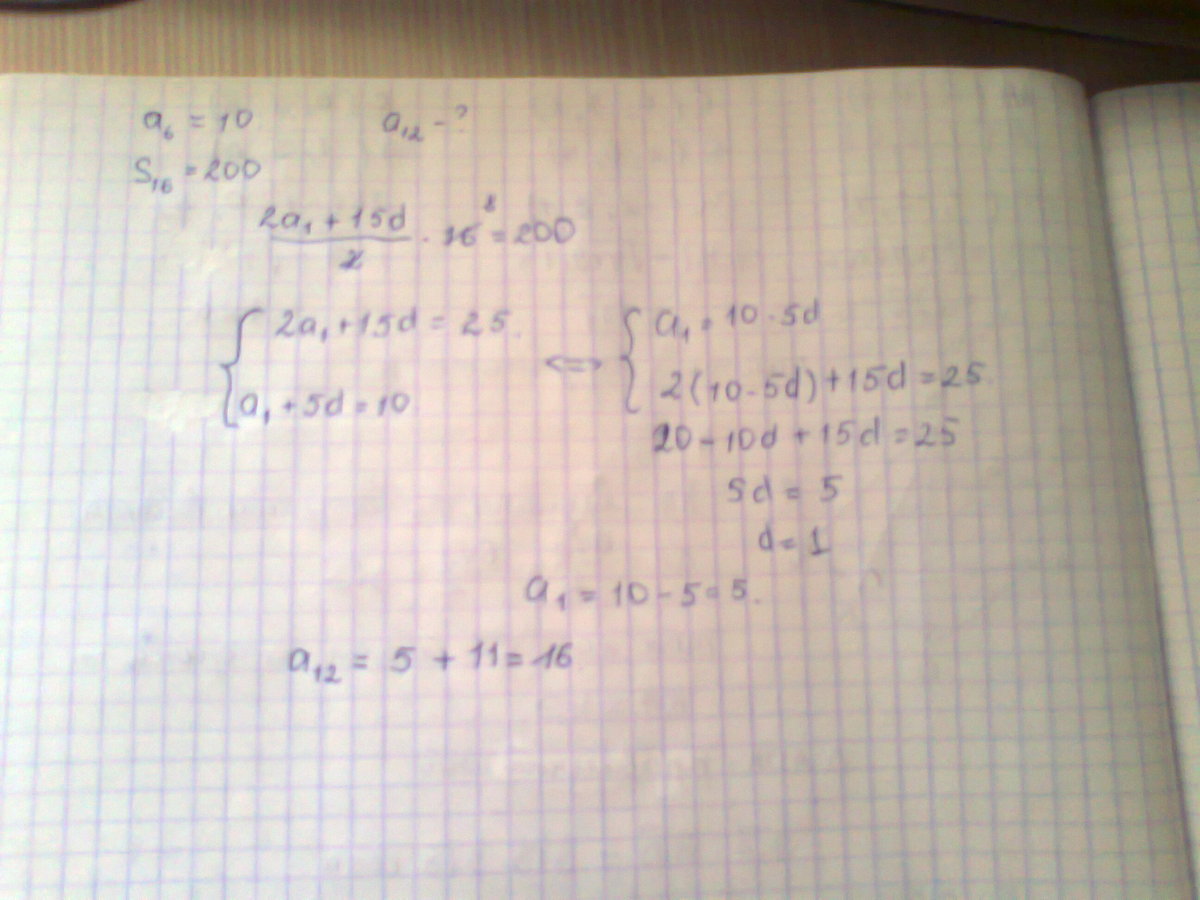 a₆ = 10 a₁₂ - ?
S₁₆ = 200
(2a₁ + 15d)/2 · 16 ⁸ = 200
{ 2a₁ + 15d = 25. <=> { a₁ = 10 - 5d
a₁ + 5d = 10 2(10 - 5d) + 15d = 25.
20 - 10d + 15d = 25
5d = 5
d = 1
a₁ = 10 - 5 = 5.
a₁₂ = 5 + 11 = 16